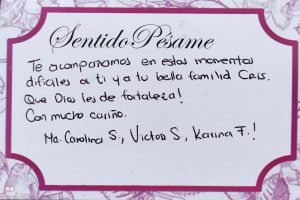 Sentido Pésame
Te acompañamos en estos momentos
difíciles a ti y a tu bella familia Cris.
Que Dios les de fortaleza!
Con mucho cariño.
Ma. Carolina S., Victor S., Karina F.!